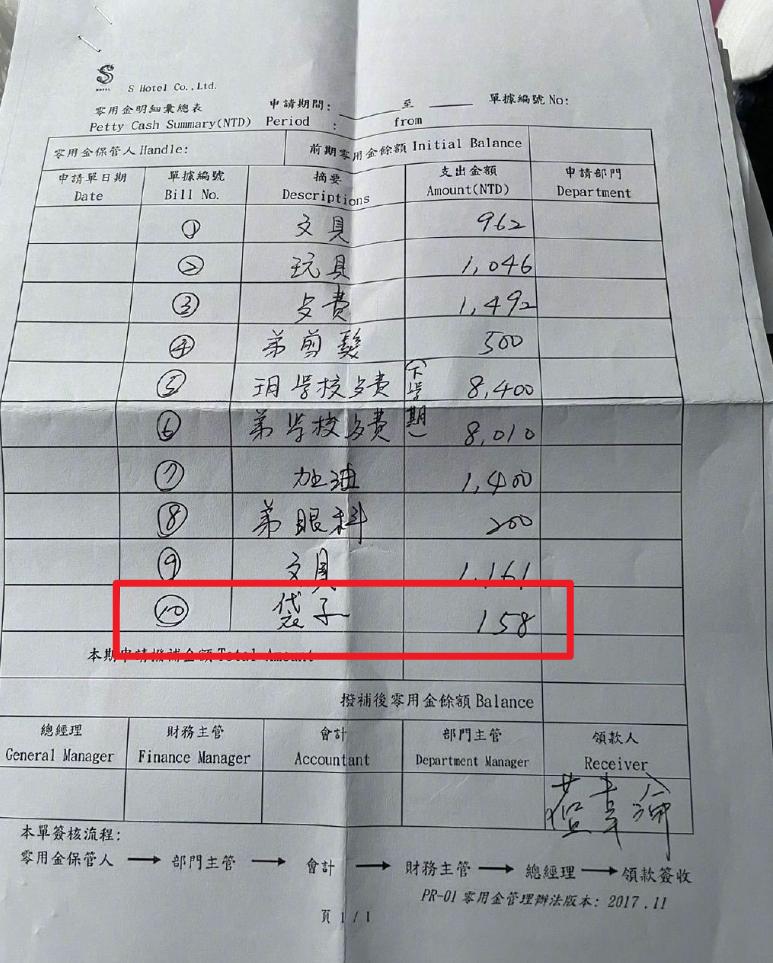 S Hotel Co.,Ltd.
零用金明細彙總表 申請期間: 至 單據編號 No:
Petty Cash Summary(NTD) Period : from
零用金保管人 Handle: 前期零用金餘額 Initial Balance
申請單日期 單據編號 摘要 支出金額 申請部門
Date Bill No. Descriptions Amount(NTD) Department
① 文具 962
② 玩具 1,046
③ 歺費 1,492
④ 弟剪髮 500
⑤ 玥學校歺費(下學期) 8,400
⑥ 弟学校歺費 8,010
⑦ 加油 1,400
⑧ 弟眼科 200
⑨ 文具 1,161
⑩ 袋子 158
本期申請撥補金額 Total Amount
撥補後零用金餘額 Balance
總經理 財務主管 會計 部門主管 領款人
General Manager Finance Manager Accountant Department Manager Receiver
本單簽核流程:
零用金保管人 → 部門主管 → 會計 → 財務主管 → 總經理 → 領款簽收
PR-01 零用金管理辦法版本: 2017.11
頁 1/1